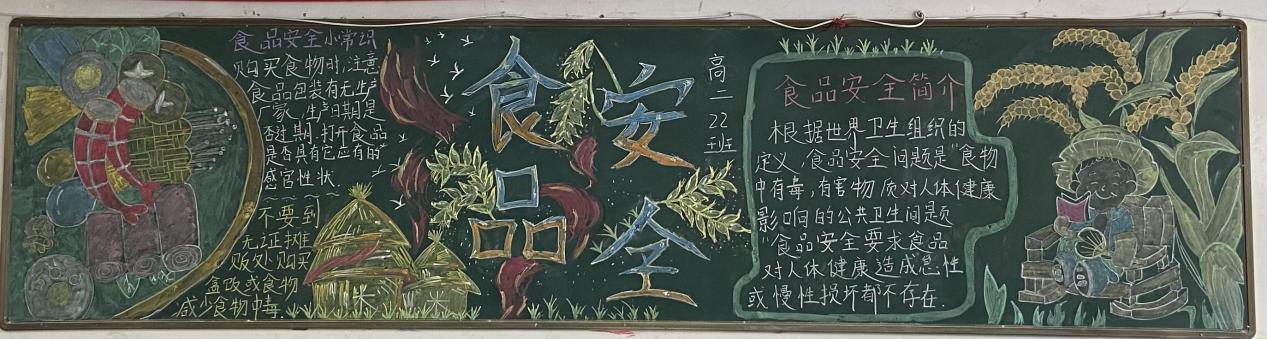 食品安全小常识
购买食物时,注意
食品包装有无生产
厂家,生产日期是
否过期,打开食品
是否具有它应有的
感官性状.
不要到
无证摊
贩处购买
盒饭或食物
减少食物中毒.
米
米
食品
安全
高二22班
食品安全简介
根据世界卫生组织的
定义,食品安全问题是"食物
中有毒,有害物质对人体健康
影响的公共卫生问题
"食品安全要求食品
对人体健康造成急性
或慢性损坏都不存在.